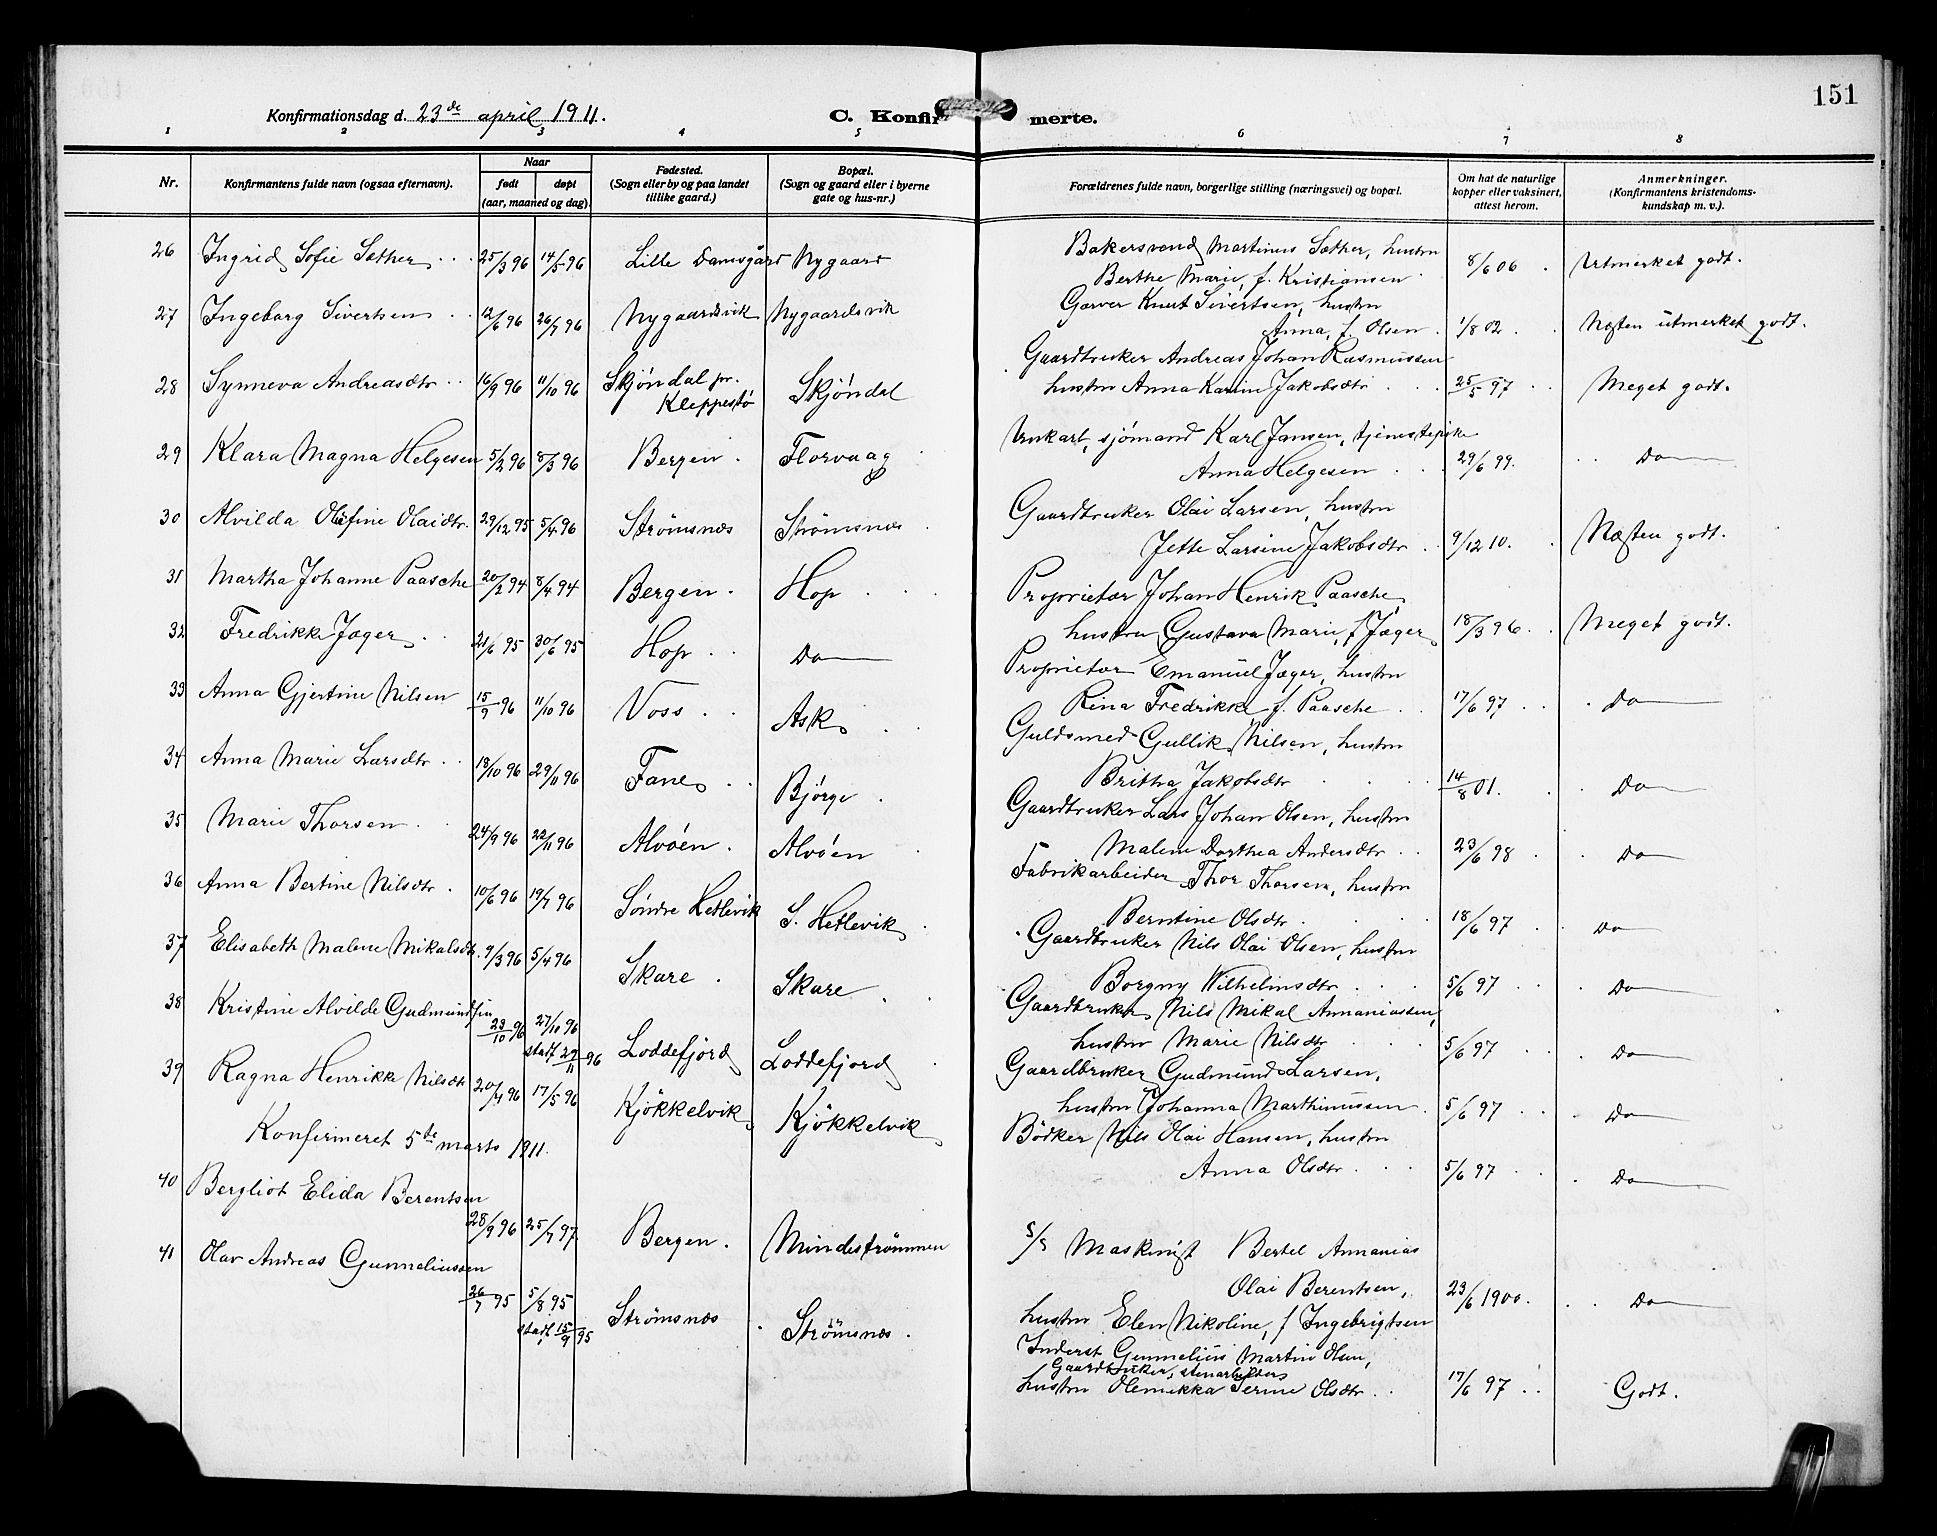 151
Konfirmationsdag d. 23de april 1911.
C. Konfirmerte.
1 2 3 4 5 6 7 8
Nr.
Konfirmantens fulde navn (ogsaa efternavn).
Naar
født døpt
(aar, maaned og dag).
Fødested.
(Sogn eller by og paa landet
tillike gaard.)
Bopæl.
(Sogn og gaard eller i byerne
gate og hus-nr.)
Forældrenes fulde navn, borgerlige stilling (næringsvei) og bopæl.
Om hat de naturlige
kopper eller vaksinert,
attest herom.
Anmerkninger.
(Konfirmantens kristendoms-
kundskap m. v.).
26 Ingrid Sofie Sæther 25/3 96 14/5 96 Lille Damsgård Nygaard
Bakersvend Martinus Sæther, hustru
Berthe Marie, f. Kristiansen 8/6 06 Utmerket godt.
27 Ingeborg Sivertsen 12/6 96 26/7 96 Nygaardsvik Nygaardsvik
Garver Knut Sivertsen, hustru
Anna, f. Olsen 1/8 02 Næsten utmerket godt.
28 Synneva Andreasdtr 16/9 96 11/10 96 Skjøndal pr.
Kleppestø Skjøndal
Gaardbruker Andreas Johan Rasmussen
hustru Anna Karine Jakobsdtr 25/5 97 Meget godt.
29 Klara Magna Helgesen 5/2 96 8/3 96 Bergen Florvaag
Unkarl, sjømand Karl Jansen, tjenestepike
Anna Helgesen 29/6 99. Do
30 Alvilda Olefine Olaidtr. 29/12 95 5/4 96 Strømsnæs Strømsnæs
Gaardbruker Olai Larsen, hustru
Jette Larsine Jakobsdtr 9/12 10. Næsten godt.
31 Martha Johanne Paasche 20/2 94 8/4 94 Bergen Hop
Proprietær Johan Henrik Paasche,
hustru Gustava Marie, f. Jæger 18/3 96 Meget godt.
32 Fredrikke Jæger 21/6 95 30/6 95 Hop Do
Proprietær Emanuel Jæger, hustru
Rina Fredrikke f. Paasche 17/6 97 Do
33 Anna Gjertine Nilsen 15/9 96 11/10 96 Voss Ask
Guldsmed Gullik Nilsen, hustru
Brittha Jakobsdtr 14/8 01. Do
34 Anna Marie Larsdtr 18/10 96 29/11 96 Fane Bjørge
Gaardbruker Lars Johan Olsen, hustru
Malene Dorthea Andersdtr 23/6 98 Do
35 Marie Thorsen 24/9 96 22/11 96 Alvøen Alvøen
Fabrikarbeider Thor Thorsen, hustru
Berntine Olsdtr 18/6 97 Do
36 Anna Bertine Nilsdtr 10/6 96 19/7 96 Søndre Hetlevik S. Hetlevik
Gaardbruker Nils Olai Olsen, hustru
Borgny Wilhelmsdtr 5/6 97 Do
37 Elisabeth Malene Mikalsdtr. 9/3 96 5/4 96 Skare Skare
Gaardbruker Nils Mikal Annaniassen,
hustru Marie Nilsdtr 5/6 97 Do
38 Kristine Alvilde Gudmundsen 23/10 96 27/10 96
stadf 29/11 96 Loddefjord Loddefjord
Gaardbruker Gudmund Larsen,
hustru Johanna Marthinussen 5/6 97 Do
39 Ragna Henrikke Nilsdtr 20/4 96 17/5 96 Kjøkkelvik Kjøkkelvik
Bødker Nils Olai Hansen, hustru
Anna Olsdtr 5/6 97 Do
Konfirmeret 5te marts 1911.
40 Bergliot Elida Berentsen
28/9 96 25/7 97 Bergen. Mindestrømmen
5/3 Maskinist Bertel Annanias
Olai Berentsen,
hustru Elen Nikoline, f Ingebrigtsen 23/6 1900. Do
41 Olav Andreas Gunneliussen
26/7 95 5/8 95
stadf 15/9 95 Strømsnæs Strømsnæs.
Inderst Gunnelius Martin Olsen,
Gaardbruker, stenarbeiders
hustru Olenikka Serine Olsdtr 17/6 97 Godt.